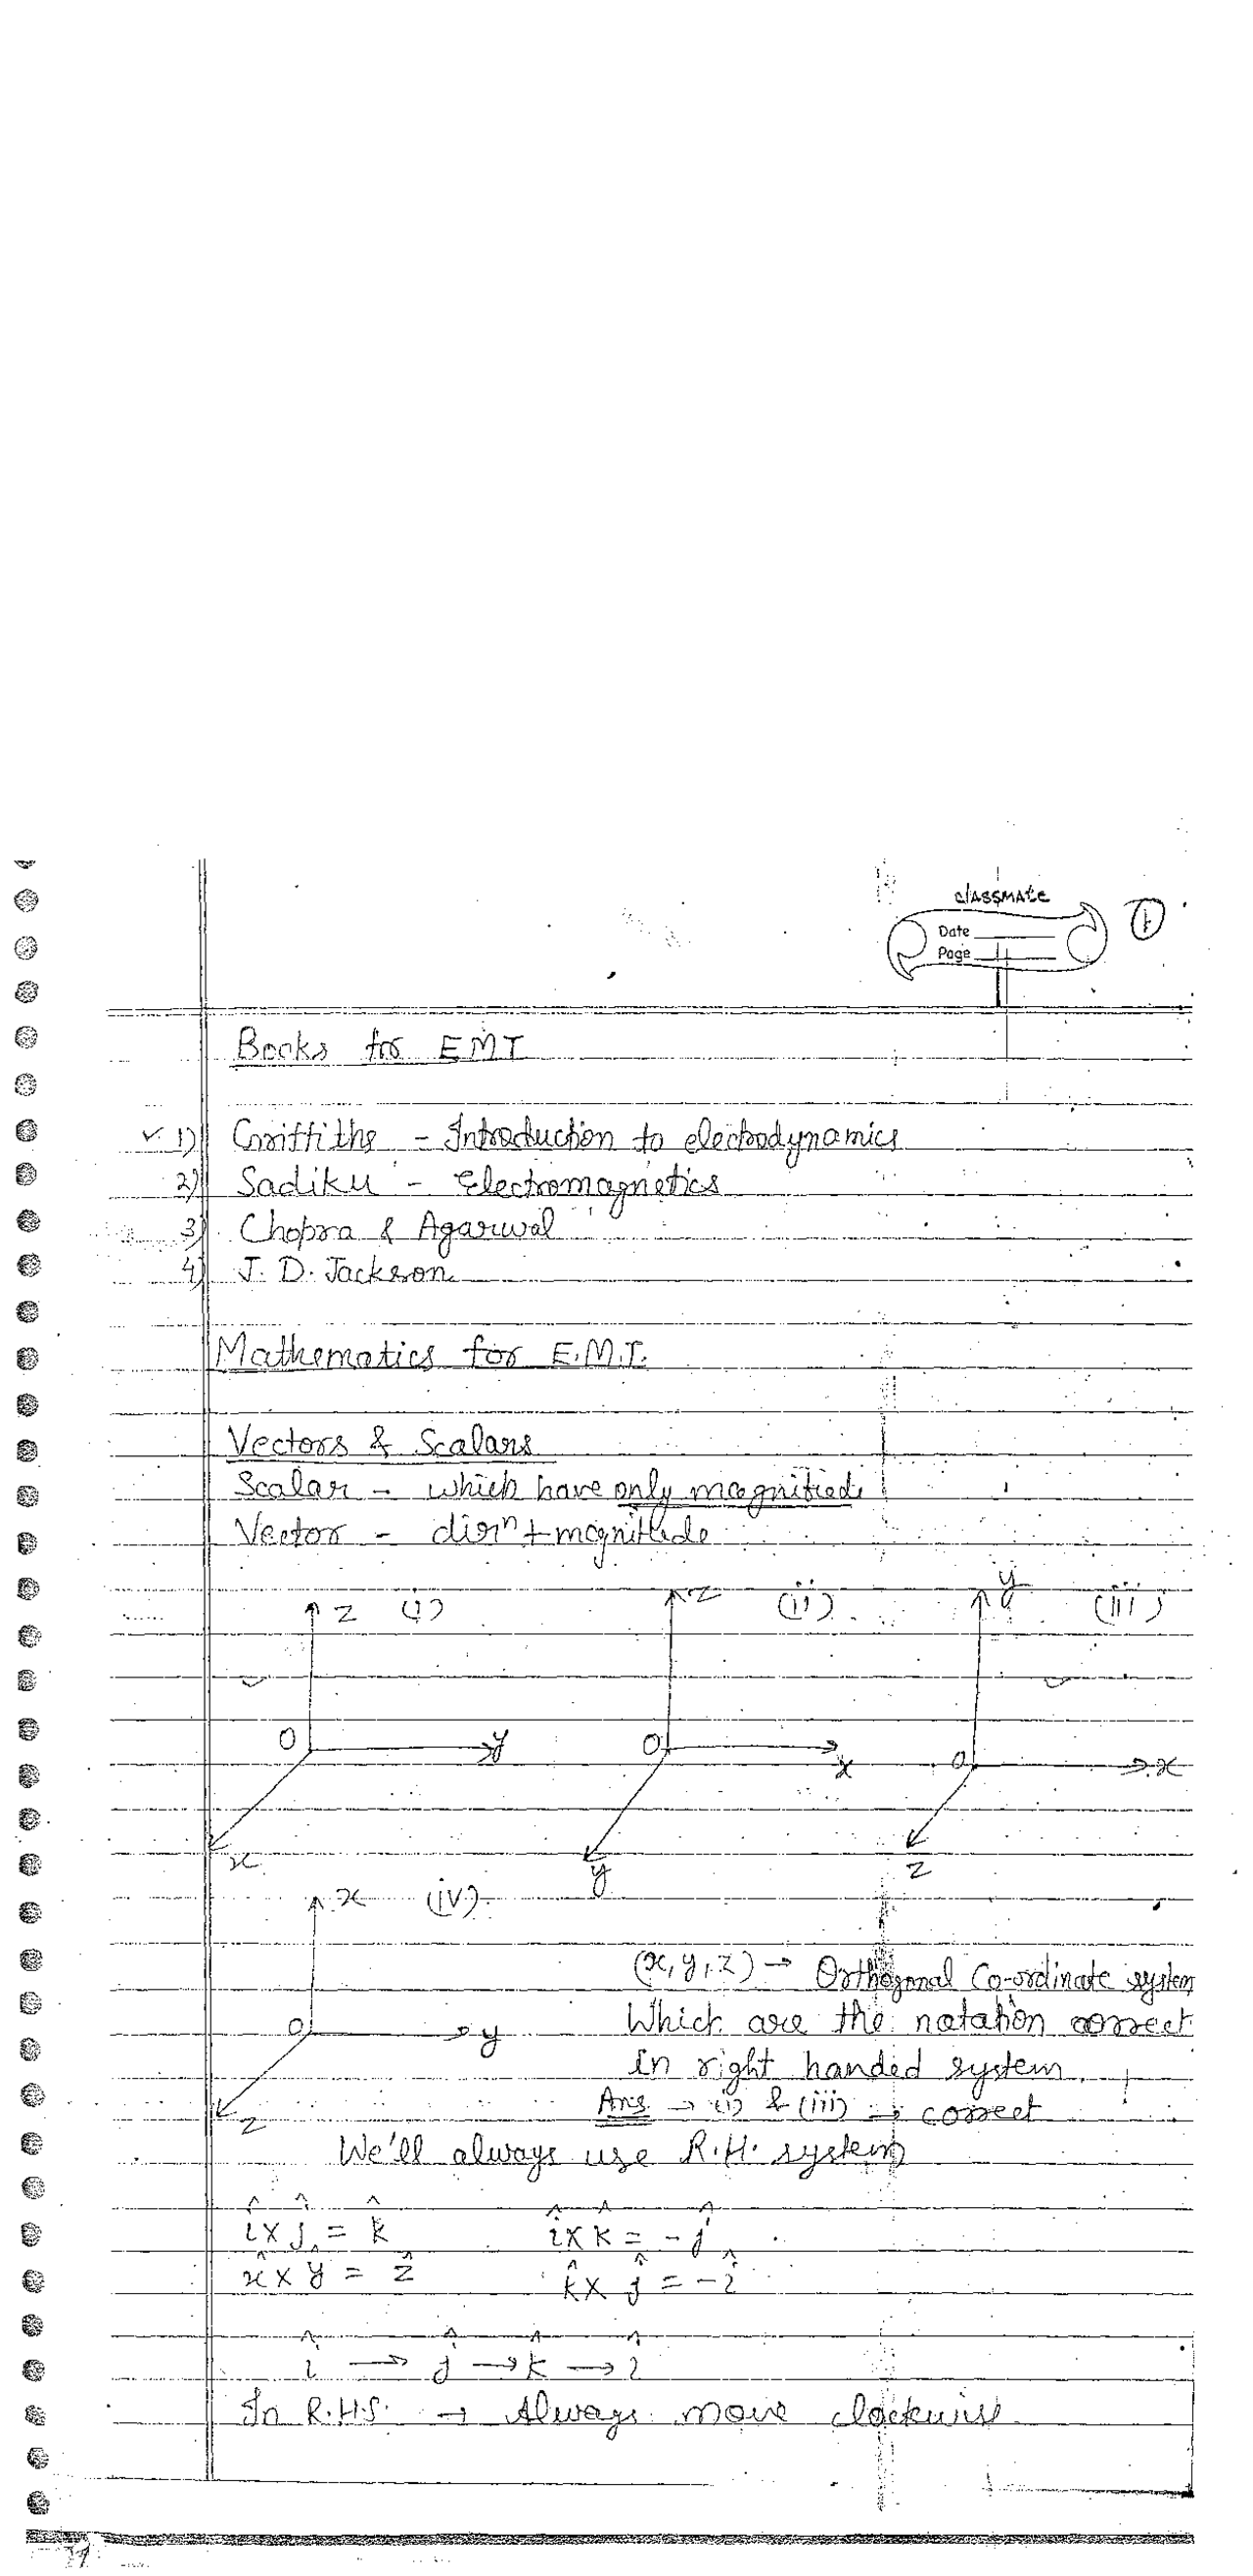 classmate
Date
Page
1
Books for EMT
✓ 1) Griffiths - Introduction to electrodynamics
2) Sadiku - Electromagnetics
3) Chopra & Agarwal
4) J. D. Jackson
Mathematics for E.M.T.
Vectors & Scalars
Scalar - which have only magnitude
Vector - dirⁿ + magnitude
z (i) z (ii) y (iii)
O y O x O x
x y z
x (iv)
(x, y, z) → Orthogonal Co-ordinate system
O y Which are the notation correct
in right handed system.
z Ans → (i) & (iii) → correct
We'll always use R.H. system
î × ĵ = k̂ î × k̂ = -ĵ
x̂ × ŷ = ẑ k̂ × ĵ = -î
î → ĵ → k̂ → î
In R.H.S. → Always move clockwise